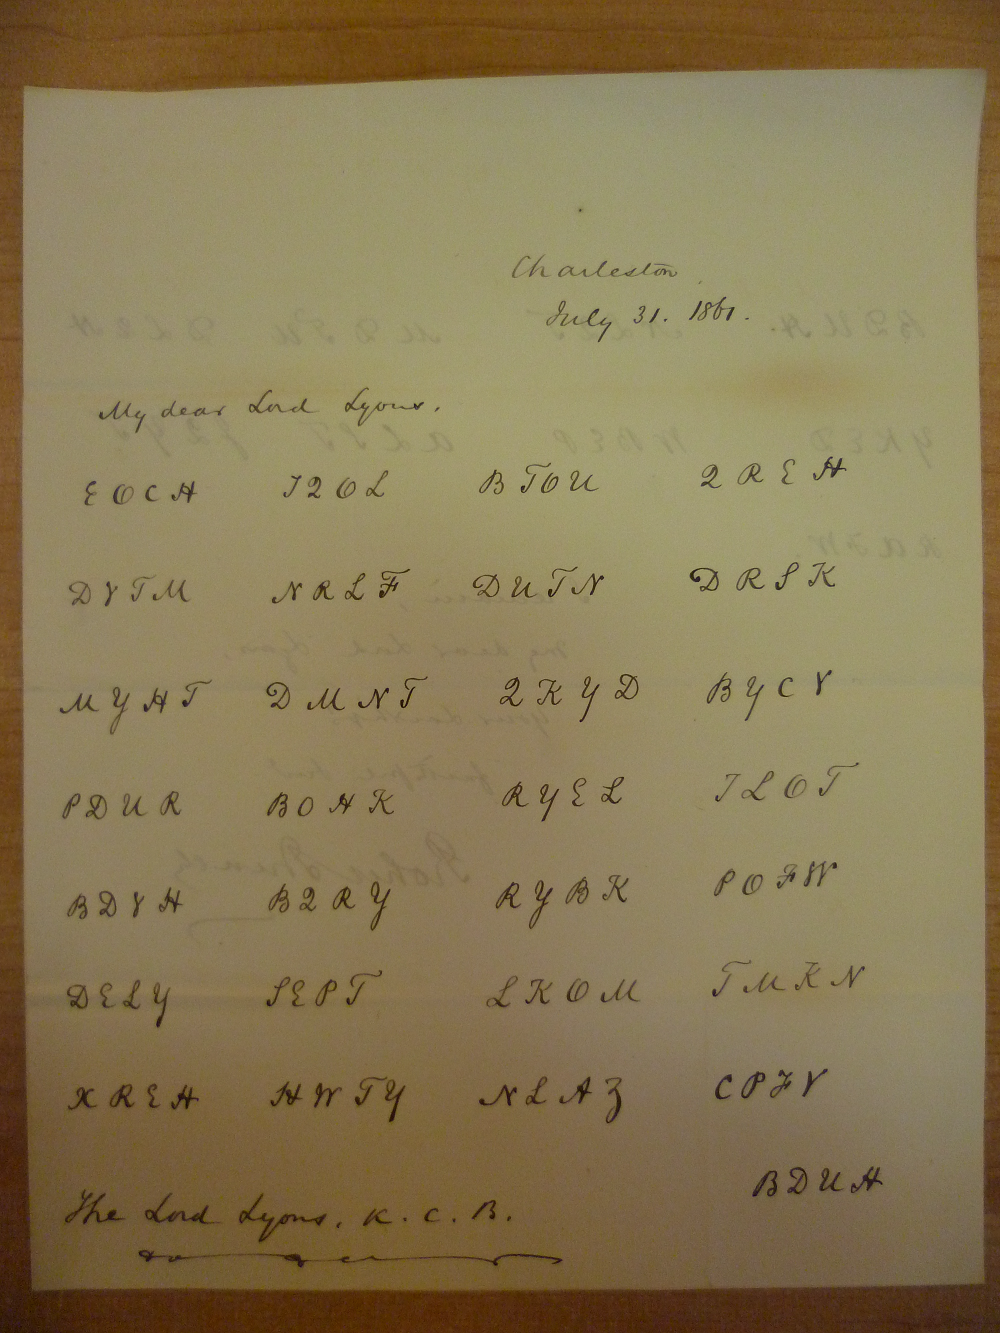 Charleston
July 31. 1861.
My dear Lord Lyons.
EOCH IQOL BTOU QREH
DVTM NRLF DUTN DRSK
MYHT DMNT QKYD BYCV
PDUR BOHK RYEL ILOT
BDVH BQRY RYBK POFW
DELY SEPT LKOM TMKN
XREH HWTY NLAZ CPFV
BDUH
The Lord Lyons. K. C. B.